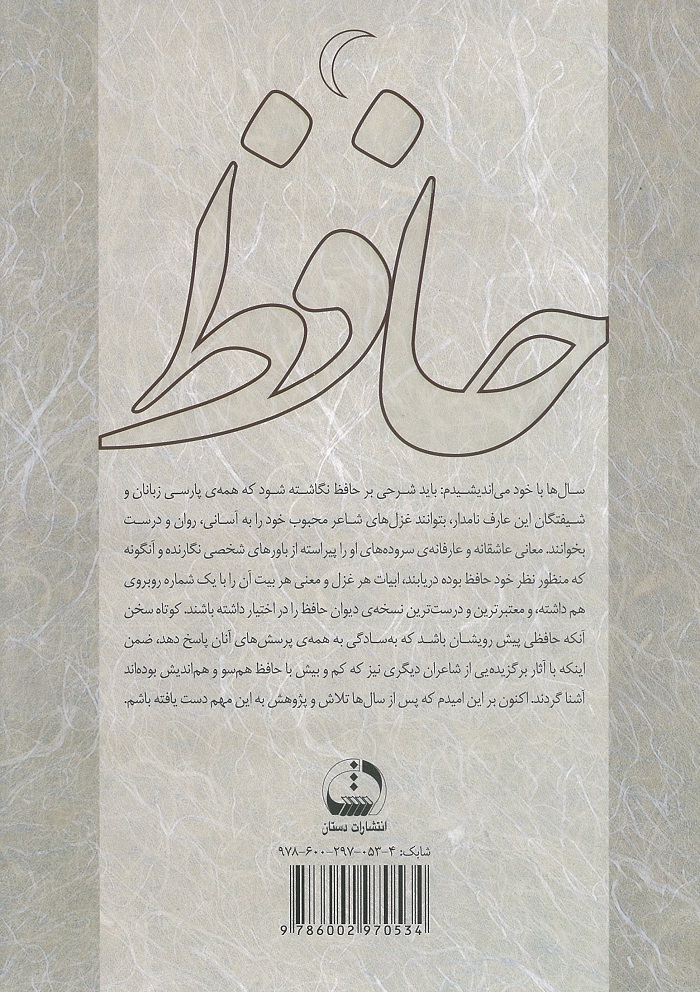 حافظ
سال‌ها با خود می‌اندیشیدم: باید شرحی بر حافظ نگاشته شود که همه‌ی پارسی زبانان و
شیفتگان این عارف نامدار، بتوانند غزل‌های شاعر محبوب خود را به آسانی، روان و درست
بخوانند. معانی عاشقانه و عارفانه‌ی سروده‌های او را پیراسته از باورهای شخصی نگارنده و آنگونه
که منظور نظر خود حافظ بوده دریابند، ابیات هر غزل و معنی هر بیت آن را با یک شماره روبروی
هم داشته، و معتبرترین و درست‌ترین نسخه‌ی دیوان حافظ را در اختیار داشته باشند. کوتاه سخن
آنکه حافظی پیش رویشان باشد که به‌سادگی به همه‌ی پرسش‌های آنان پاسخ دهد، ضمن
اینکه با آثار برگزیده‌یی از شاعران دیگری نیز که کم و بیش با حافظ هم‌سو و هم‌اندیش بوده‌اند
آشنا گردند. اکنون بر این امیدم که پس از سال‌ها تلاش و پژوهش به این مهم دست یافته باشم.
انتشارات دستان
شابک: ۴-۰۵۳-۲۹۷-۶۰۰-۹۷۸
9 786002 970534